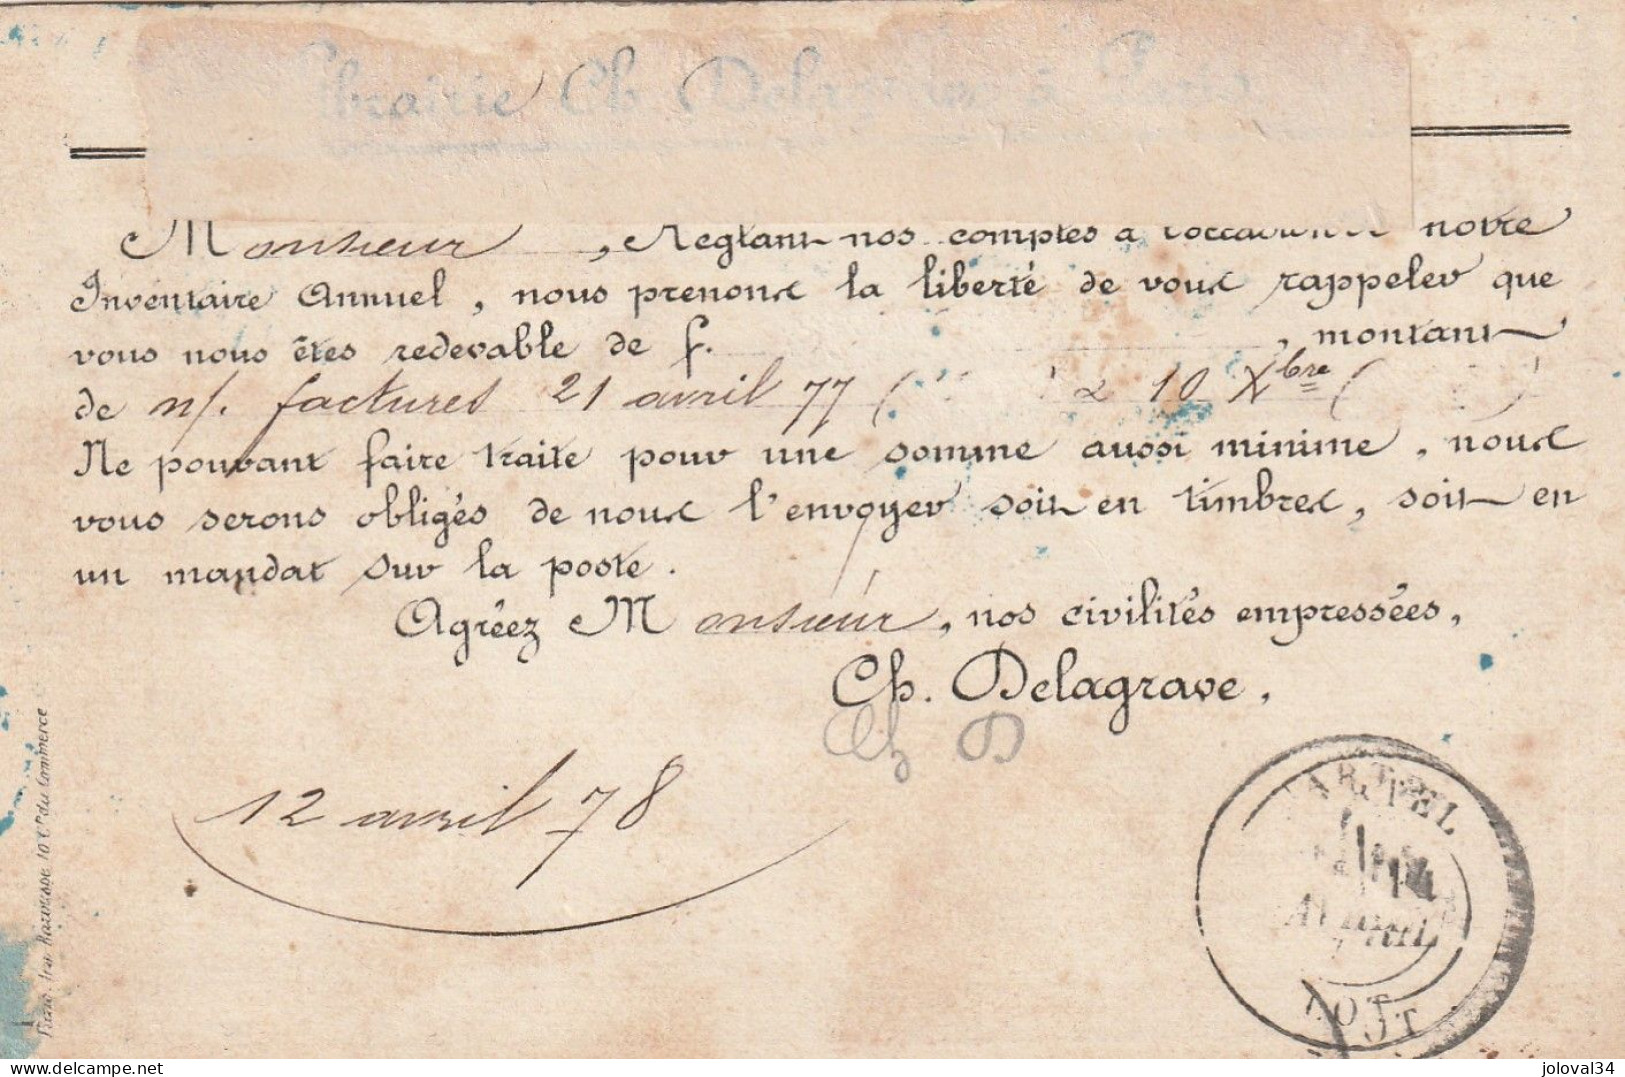 Librairie Ch. Delagrave à Paris
Monsieur, Reglant nos comptes à l'occasion de notre
Inventaire Annuel, nous prenons la liberté de vous rappeler que
vous nous êtes redevable de f. , montant
de n/. factures 21 avril 77 ( ) & 10 Xbre ( )
Ne pouvant faire traite pour une somme aussi minime, nous
vous serons obligés de nous l'envoyer soit en timbres, soit en
un mandat sur la poste.
Agréez Monsieur, nos civilités empressées,
Ch. Delagrave.
Ch D
12 avril 78
MARTEL
14
AVRIL
LOT
10 Ct du Commerce
delcampe.net
joloval34